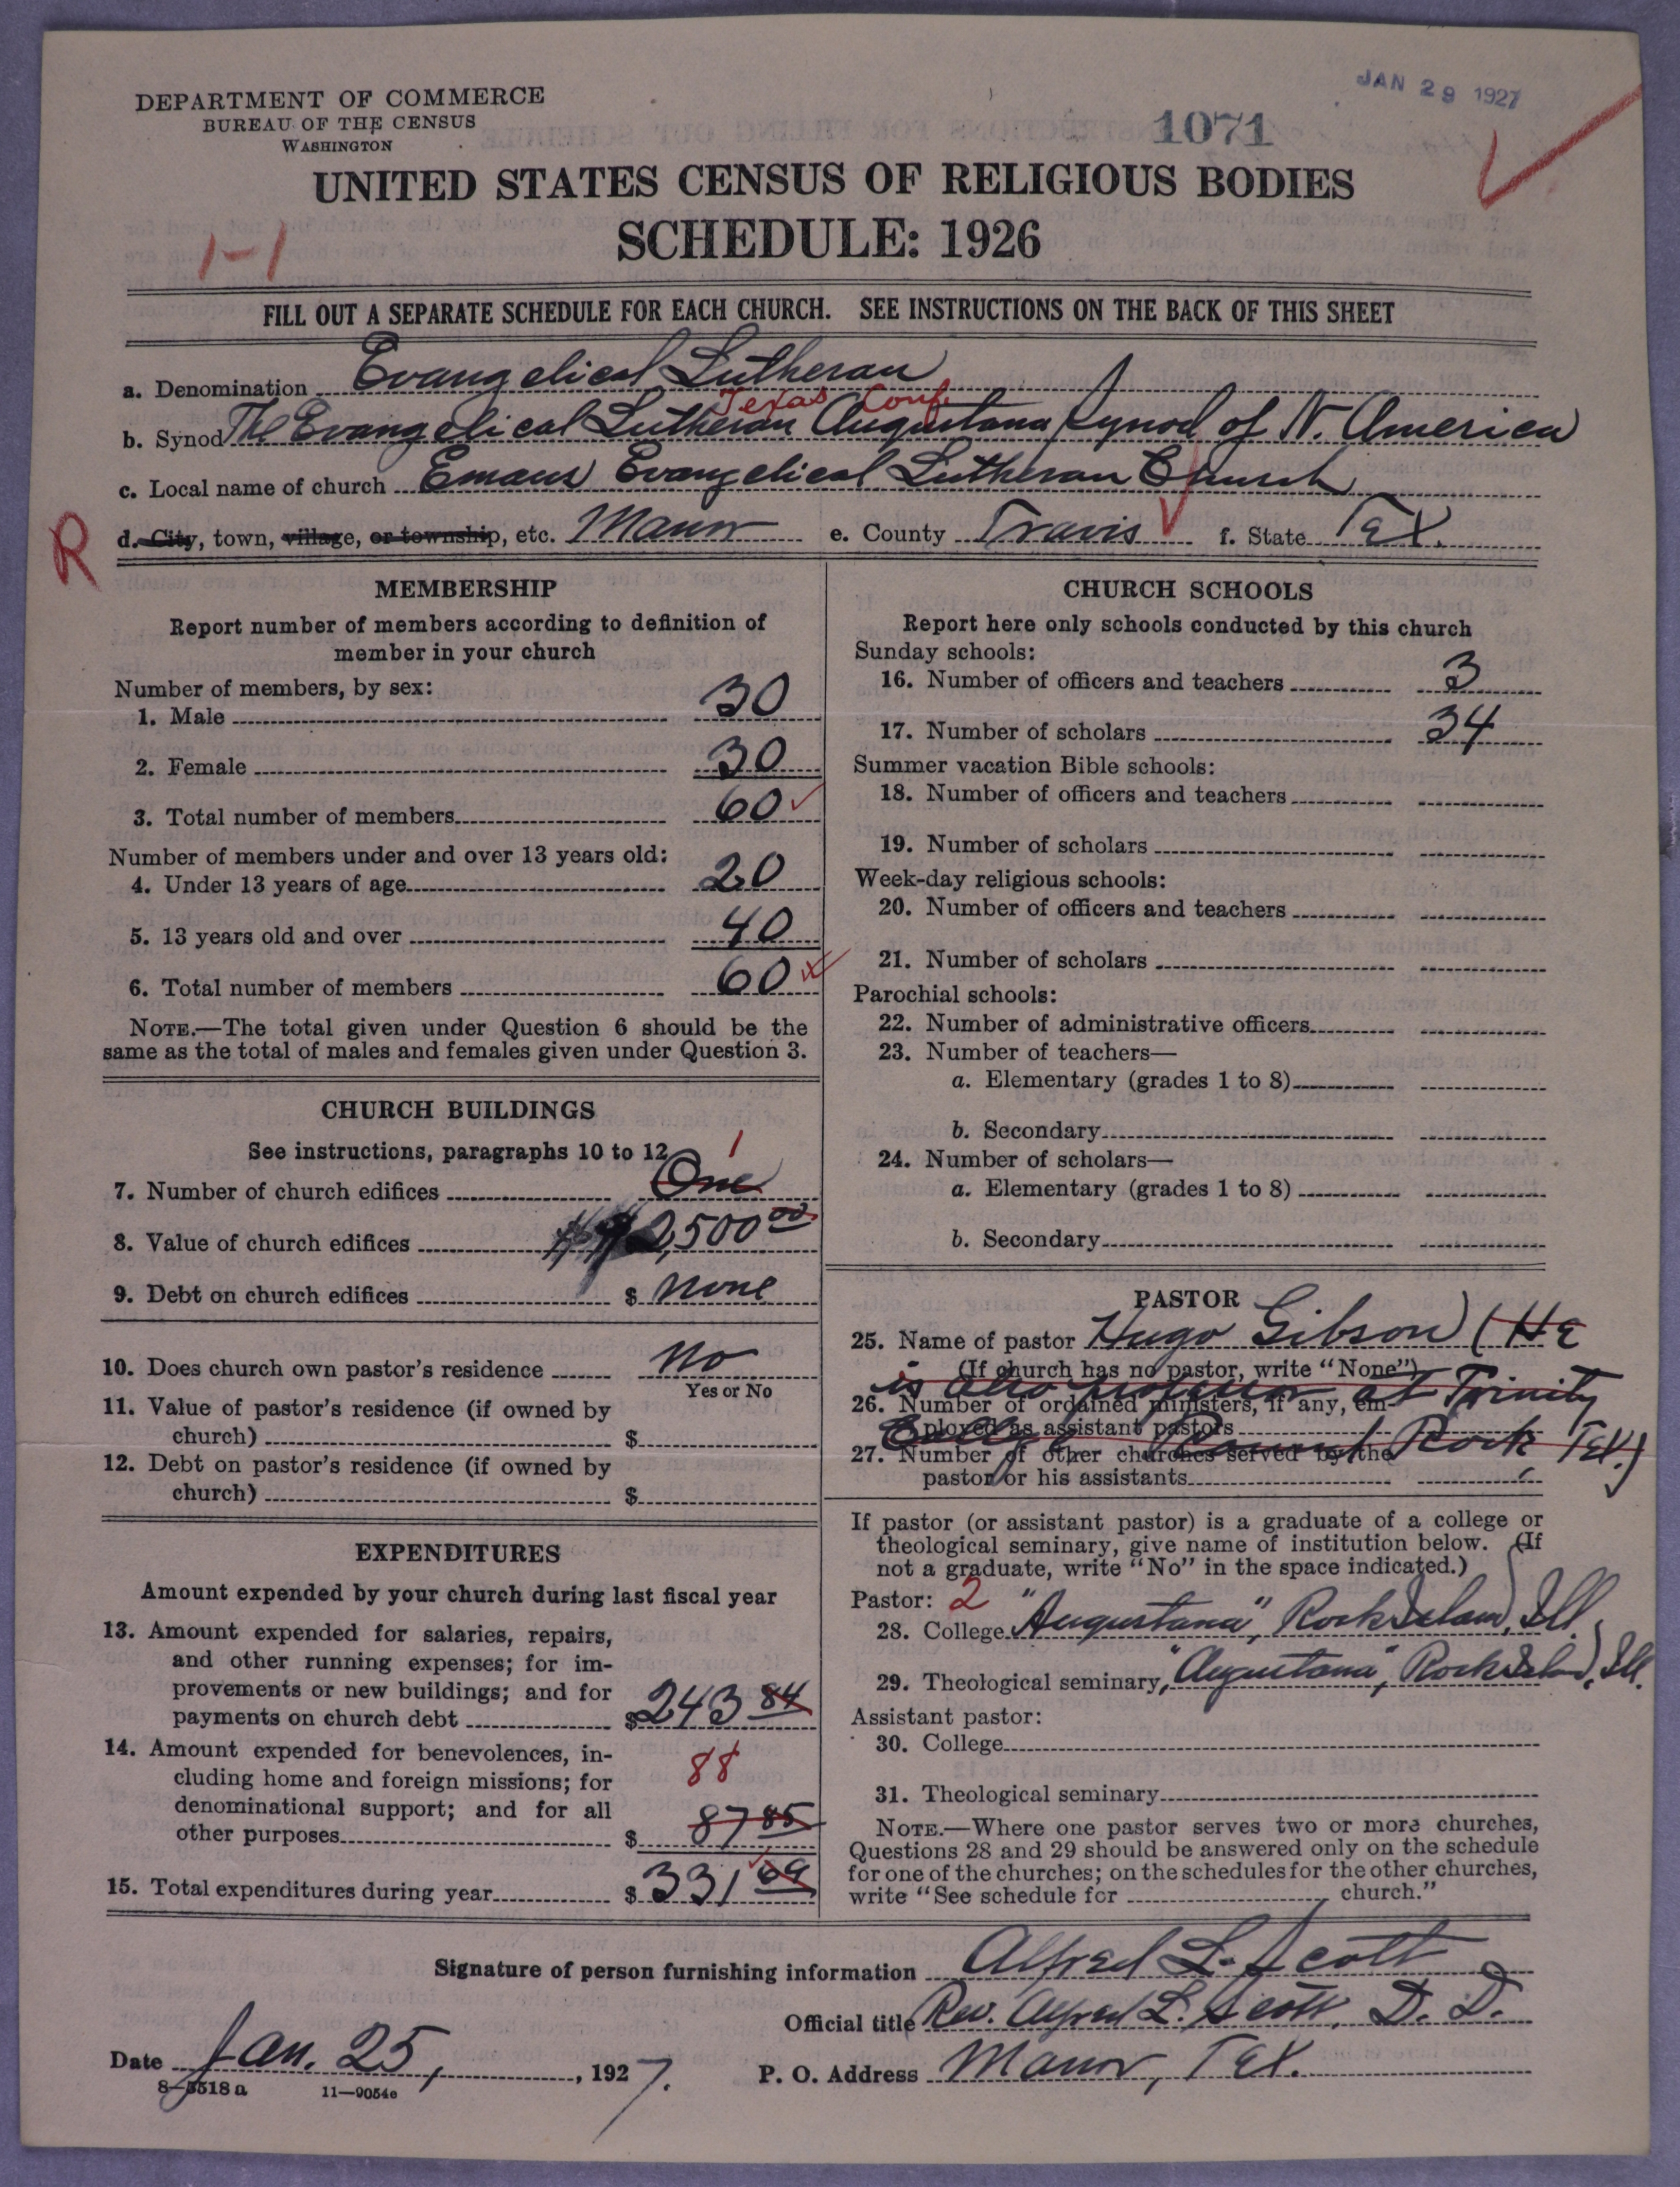 DEPARTMENT OF COMMERCE
BUREAU OF THE CENSUS
WASHINGTON
JAN 29 1927
1071
UNITED STATES CENSUS OF RELIGIOUS BODIES
SCHEDULE: 1926
1-1
FILL OUT A SEPARATE SCHEDULE FOR EACH CHURCH. SEE INSTRUCTIONS ON THE BACK OF THIS SHEET
a. Denomination Evangelical Lutheran
Texas Conf.
b. Synod The Evangelical Lutheran Augustana Synod of N. America
c. Local name of church Emaus Evangelical Lutheran Church
R
d. City, town, village, or township, etc. Manor e. County Travis f. State Tex.
MEMBERSHIP
Report number of members according to definition of
member in your church
Number of members, by sex:
1. Male 30
2. Female 30
3. Total number of members 60
Number of members under and over 13 years old:
4. Under 13 years of age 20
5. 13 years old and over 40
6. Total number of members 60
NOTE.—The total given under Question 6 should be the
same as the total of males and females given under Question 3.
CHURCH BUILDINGS
See instructions, paragraphs 10 to 12
1
7. Number of church edifices One
8. Value of church edifices $ 2,500 00
9. Debt on church edifices $ none
10. Does church own pastor's residence no
Yes or No
11. Value of pastor's residence (if owned by
church) $
12. Debt on pastor's residence (if owned by
church) $
EXPENDITURES
Amount expended by your church during last fiscal year
13. Amount expended for salaries, repairs,
and other running expenses; for im-
provements or new buildings; and for
payments on church debt $ 243 84
14. Amount expended for benevolences, in-
cluding home and foreign missions; for
88
denominational support; and for all
other purposes $ 87 85
15. Total expenditures during year $ 331 69
CHURCH SCHOOLS
Report here only schools conducted by this church
Sunday schools:
16. Number of officers and teachers 3
17. Number of scholars 34
Summer vacation Bible schools:
18. Number of officers and teachers
19. Number of scholars
Week-day religious schools:
20. Number of officers and teachers
21. Number of scholars
Parochial schools:
22. Number of administrative officers
23. Number of teachers—
a. Elementary (grades 1 to 8)
b. Secondary
24. Number of scholars—
a. Elementary (grades 1 to 8)
b. Secondary
PASTOR
25. Name of pastor Hugo Gibson (He
(If church has no pastor, write "None")
is also professor at Trinity
26. Number of ordained ministers, if any, em-
ployed as assistant pastors
College Round Rock, Tex.)
27. Number of other churches served by the
pastor or his assistants
If pastor (or assistant pastor) is a graduate of a college or
theological seminary, give name of institution below. (If
not a graduate, write "No" in the space indicated.)
Pastor: 2
28. College "Augustana", Rock Island, Ill.
29. Theological seminary, "Augustana", Rock Island, Ill.
Assistant pastor:
30. College
31. Theological seminary
NOTE.—Where one pastor serves two or more churches,
Questions 28 and 29 should be answered only on the schedule
for one of the churches; on the schedules for the other churches,
write "See schedule for church."
Signature of person furnishing information Alfred L. Scott
Official title Rev. Alfred L. Scott, D. D.
Date Jan. 25, 1927.
P. O. Address Manor, Tex.
8-5518a 11-9054e